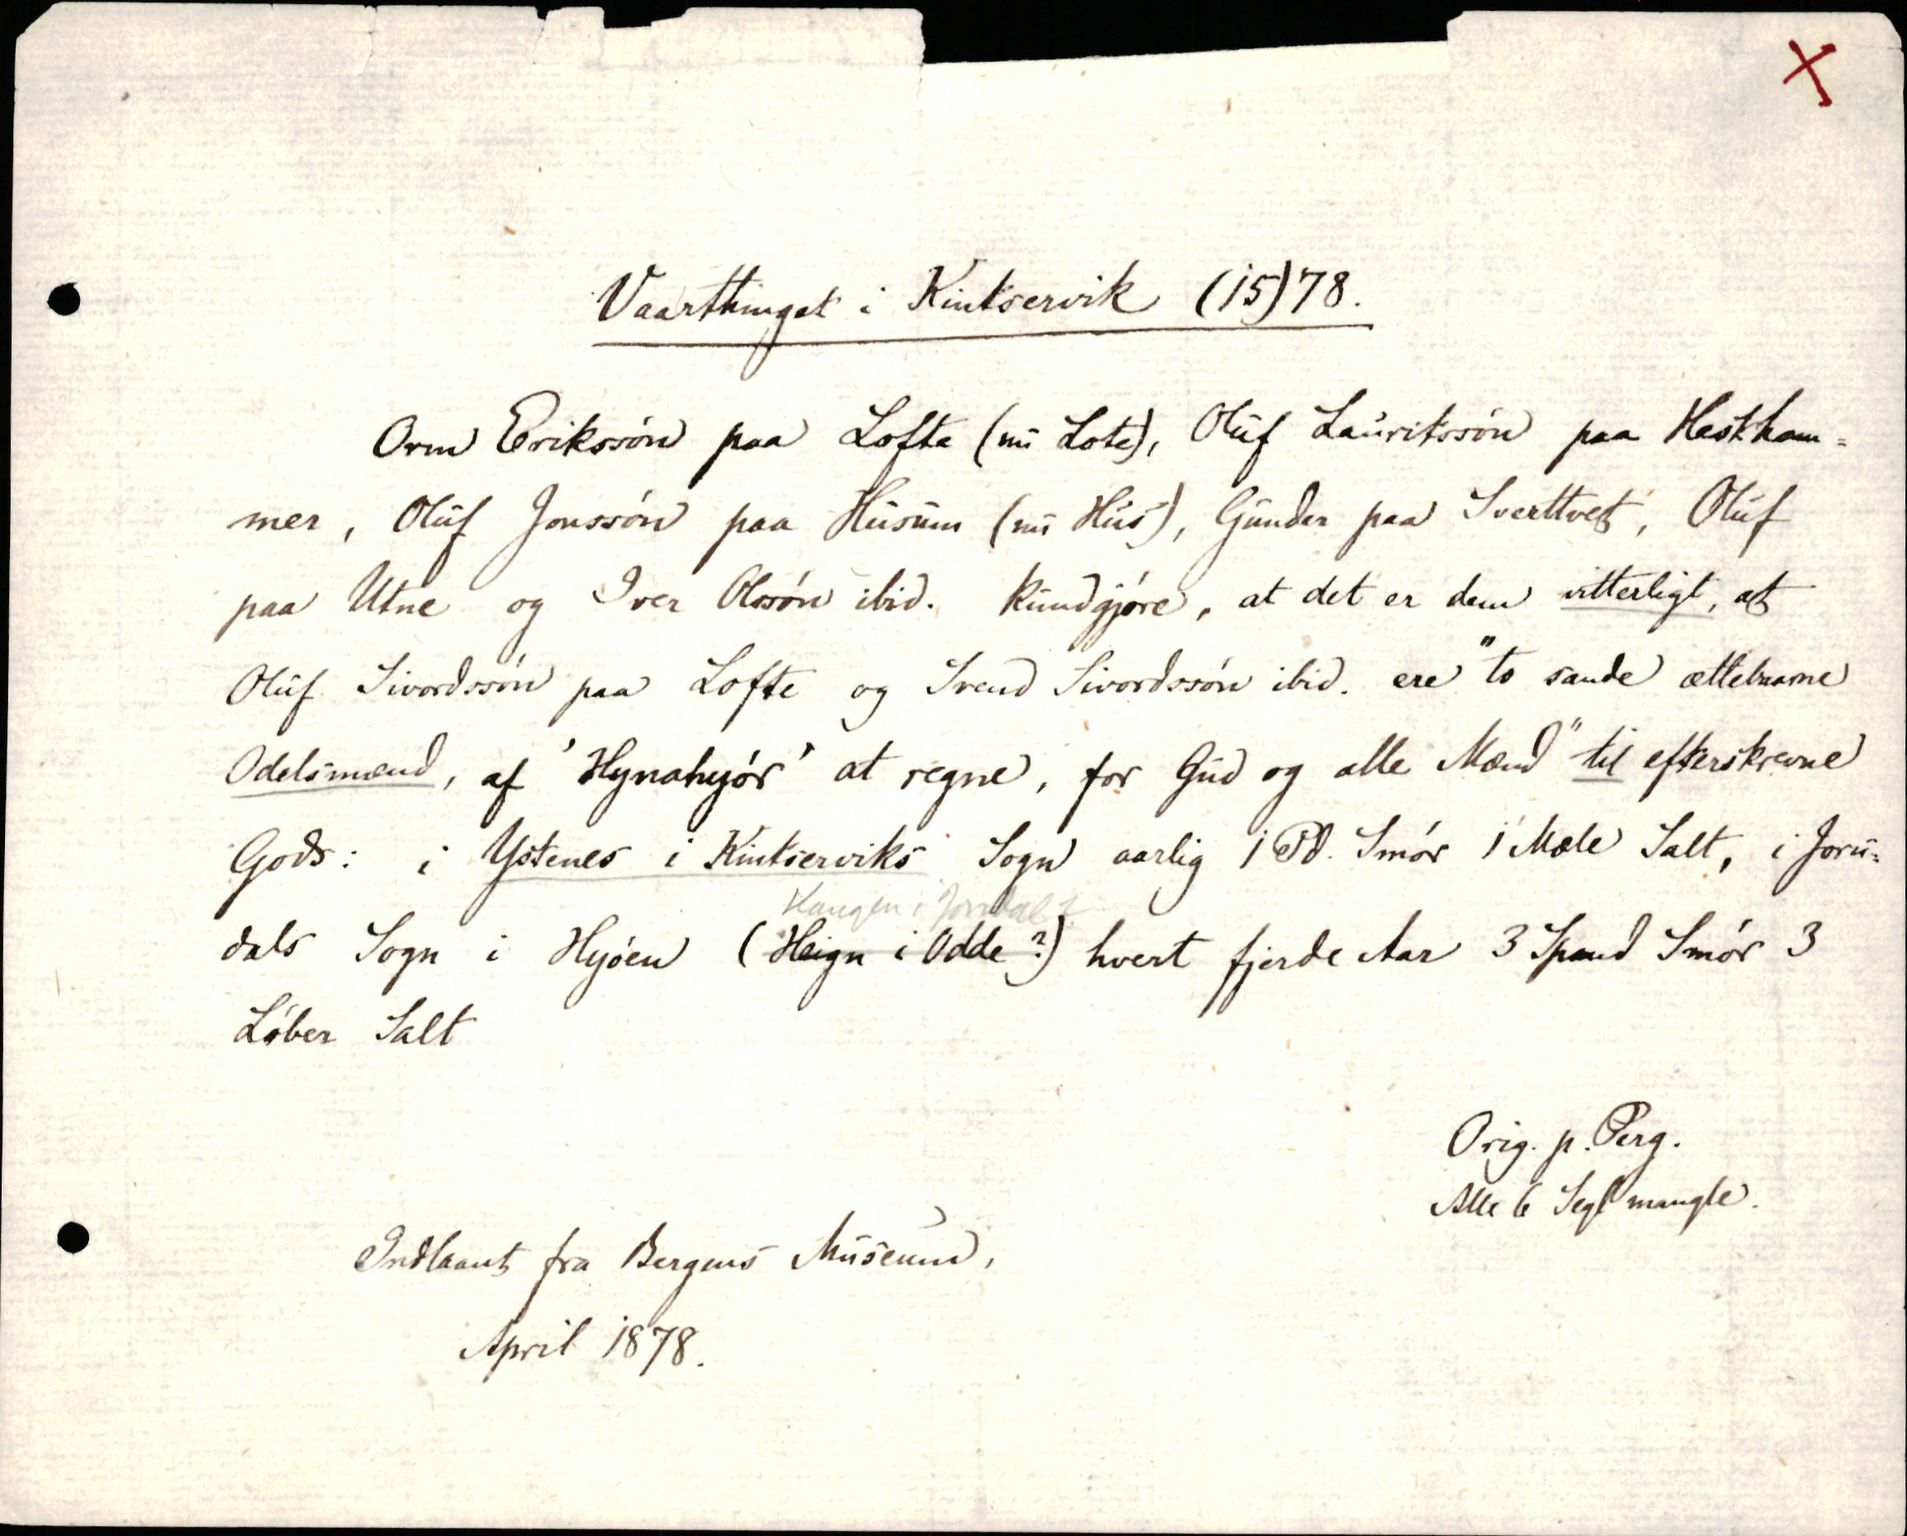 X
Vaarthinget i Kintservik (15)78.
Orm Erikssön paa Lofte (nu Lote), Oluf Lauritssön paa Hestham=
mer, Oluf Jonssön paa Husum (nu Hus), Gunder paa Sverttvet, Oluf
paa Utne og Iver Olssön ibid. kundgjöre, at det er dem vitterligt, at
Oluf Sivordssön paa Lofte og Svend Sivordssön ibid. ere "to sande ættebaarne
Odelsmænd, af 'Hynahyór' at regne, for Gud og alle Mænd" til efterskrevne
Gods: i Ystenes i Kintserviks Sogn aarlig 1 Pd. Smör 1 Mæle Salt, i Joru=
Haugen i Jondal?
dals Sogn i Hyöen (Heign i Odde?) hvert fjerde Aar 3 Spand Smör 3
Löber Salt
Orig. p. Perg.
Alle 6 Segl mangle.
Indlaant fra Bergens Museum,
April 1878.